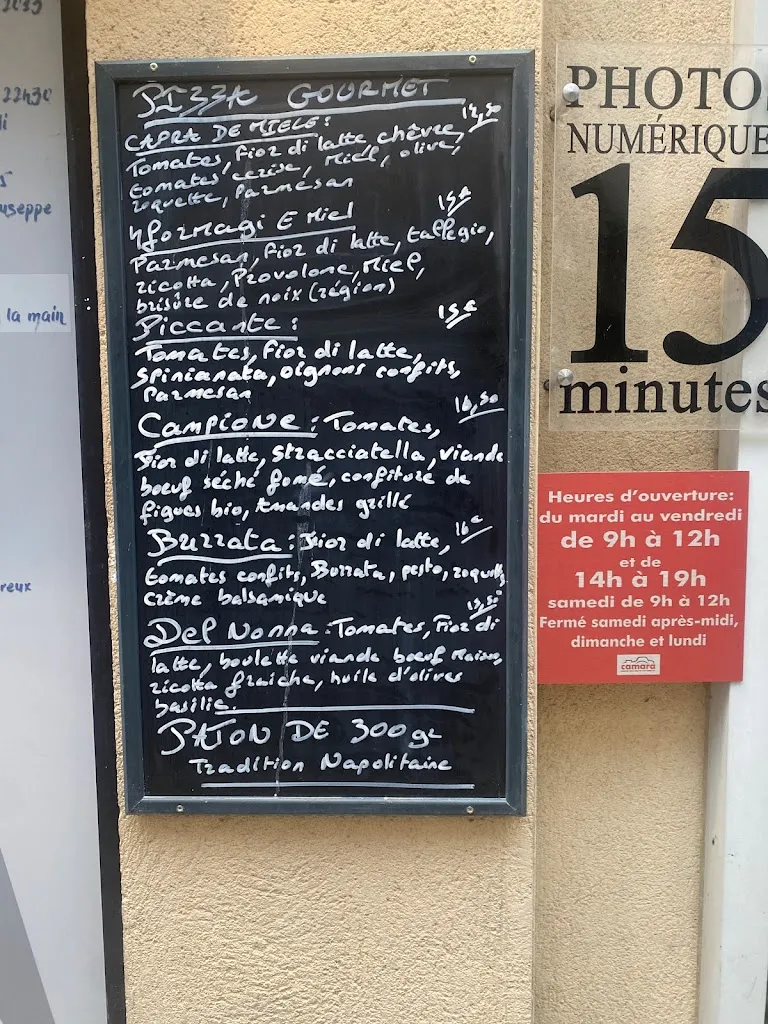 22h30
useppe
la main
reux
PIZZA GOURMET
CAPRA DE MIELE:
Tomates, Fior di latte chèvre,
tomates cerise, Miel, olive,
roquette, Parmesan
4 formagi E Miel
Parmesan, Fior di latte, tallegio,
ricotta, Provolone, Miel,
brisure de noix (région)
Piccante:
15€
Tomates, Fior di latte,
Spinianata, oignons confits,
Parmesan
16,50
Campione: Tomates,
Fior di latte, Stracciatella, viande
boeuf séché fumé, confiture de
figues bio, Amandes grillé
Burrata: Fior di latte, 16€
tomates confits, Burrata, pesto, roquette,
crème balsamique
Del Nonna: Tomates, Fior di
latte, boulette viande boeuf Maison,
ricotta fraiche, huile d'olives
basilic.
PATON DE 300gr
Tradition Napolitaine
PHOTO
NUMÉRIQUE
15
minutes
Heures d'ouverture:
du mardi au vendredi
de 9h à 12h
et de
14h à 19h
samedi de 9h à 12h
Fermé samedi après-midi,
dimanche et lundi
camara